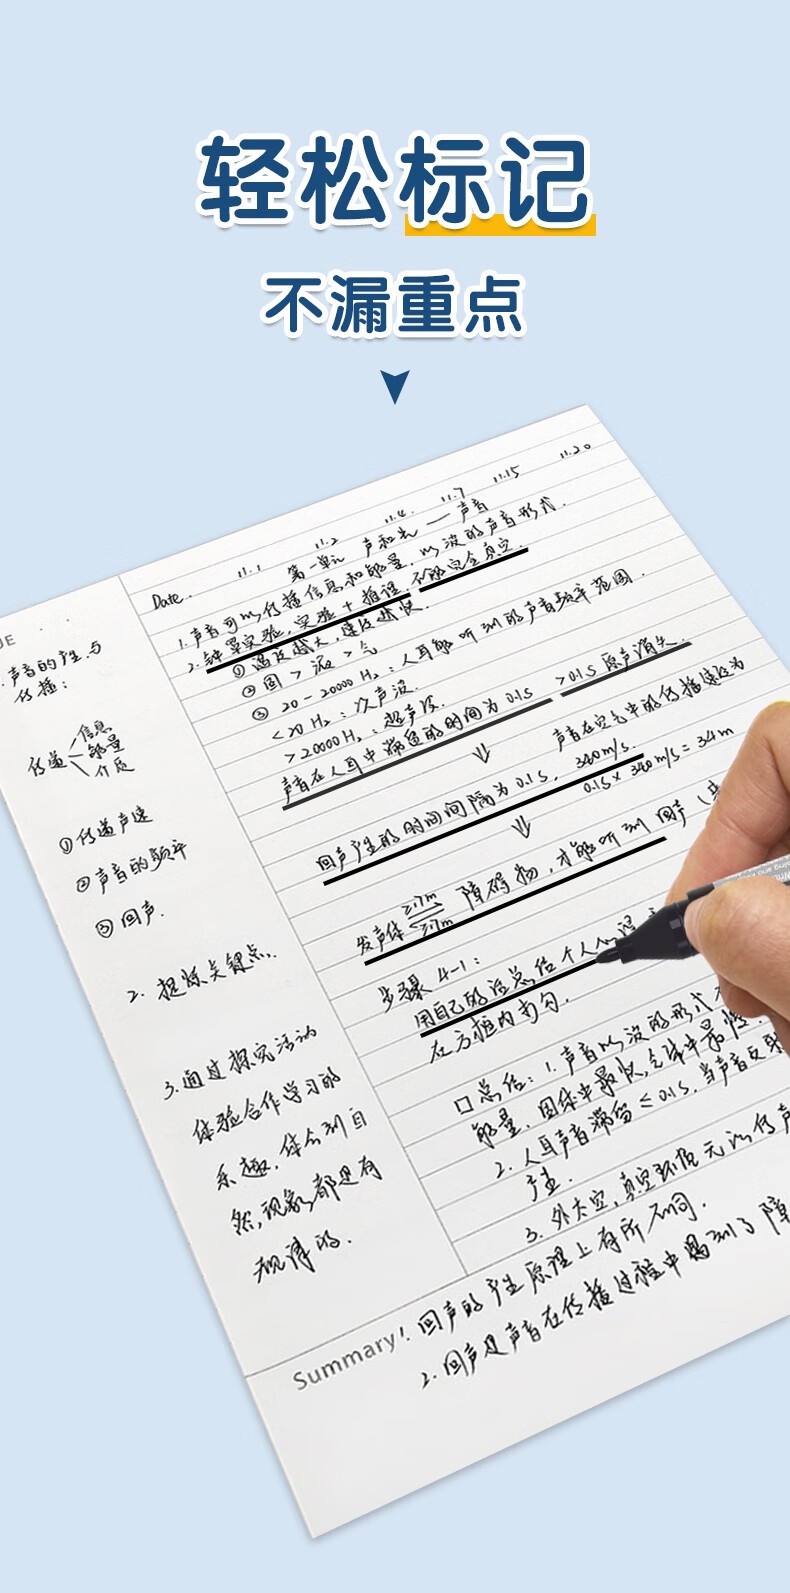 轻松标记
不漏重点
Date. 11.1 11.2 11.4. 11.7 11.15 11.20
第一单元 声和光 — 声音
1. 声音可以传播信息和能量, 以波的声音形式.
2. 钟罩实验, 实验+推理 不能完全真空.
① 温度越大, 速度越快.
② 固 > 液 > 气
③ 20-20000 Hz : 人耳能听到的声音频率范围.
<20 Hz : 次声波.
>20000 Hz : 超声波.
声音在人耳中滞留的时间为0.1s >0.1s 原声消失.
⇓ 声音在空气中的传播速度为
340m/s.
回声产生的时间间隔为0.1s, 0.1s×340m/s=34m
⇓
发声体 ≥17m ≥17m 障碍物, 才能听到回声
步骤 4-1:
用自己的话总结个人
在方框内写句.
口总结: 1. 声音以波的形式
能量. 固体中最快, 气体中最慢.
2. 人耳声音滞留≤0.1s. 当声音反射
产生.
3. 外太空, 真空环境无法传声
UE
1. 声音的产生与
传播:
传递 信息
能量
介质
① 传递声速
② 声音的频率
③ 回声.
2. 提炼关键点.
3. 通过探究活动
体验合作学习的
乐趣. 体会到自
然现象都是有
规律的.
Summary! 回声的产生原理上有所不同.
2. 回声是声音在传播过程中遇到了障